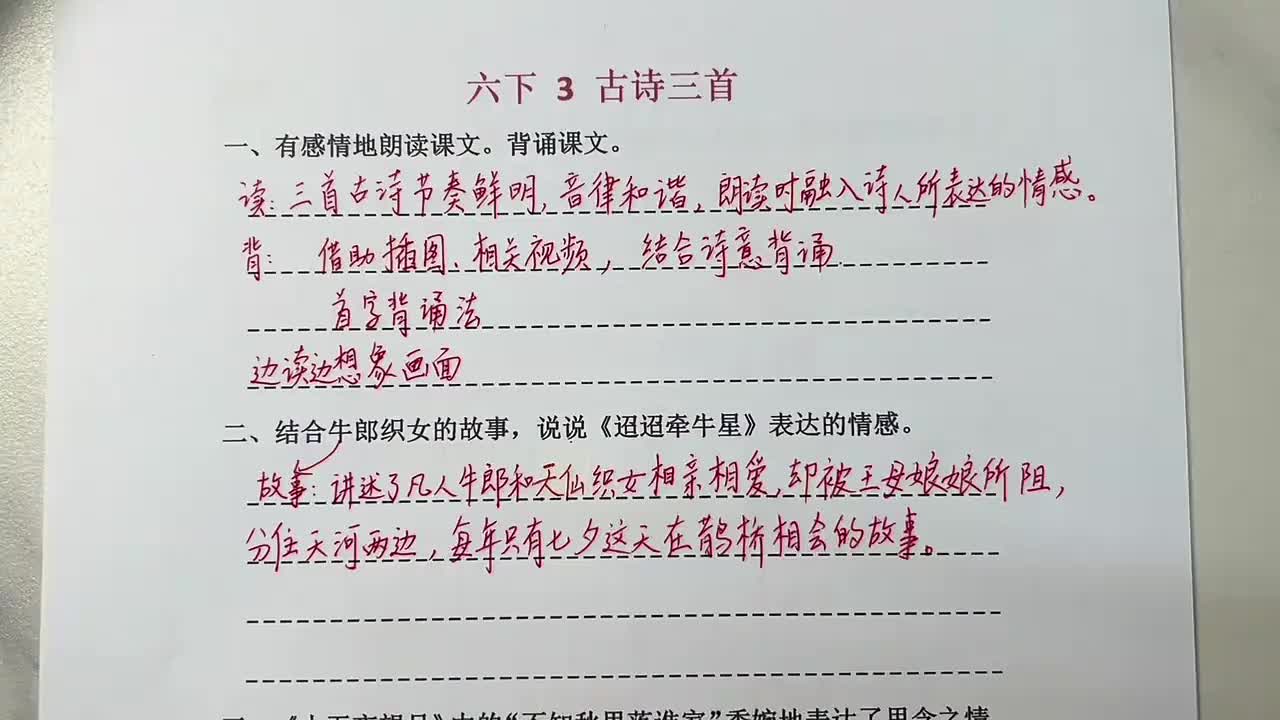 六下 3 古诗三首
一、有感情地朗读课文。背诵课文。
读:三首古诗节奏鲜明,音律和谐,朗读时融入诗人所表达的情感。
背: 借助插图、相关视频, 结合诗意背诵.
首字背诵法
边读边想象画面
二、结合牛郎织女的故事,说说《迢迢牵牛星》表达的情感。
故事:讲述了凡人牛郎和天仙织女相亲相爱,却被王母娘娘所阻,
分住天河两边,每年只有七夕这天在鹊桥相会的故事。
三、《十五夜望月》中的“不知秋思落谁家”委婉地表达了思念之情